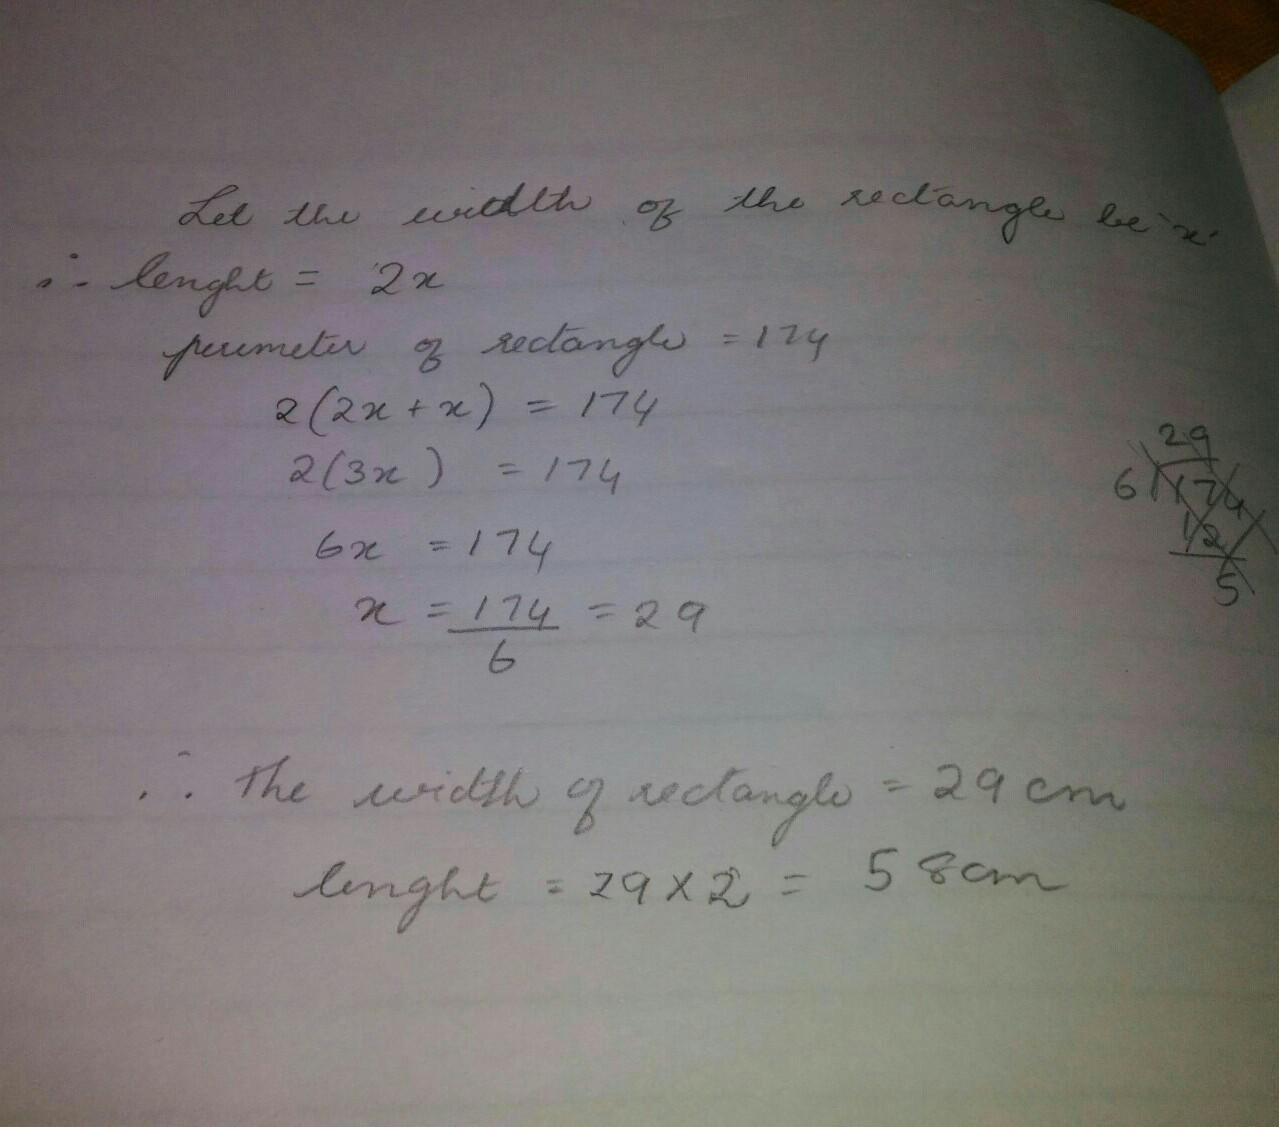 Let the width of the rectangle be 'x'
∴ lenght = 2x
perimeter of rectangle = 174
2(2x + x) = 174
2(3x) = 174
6x = 174
x = 174/6 = 29
29
6)174
12
5
∴ The width of rectangle = 29 cm
lenght = 29 x 2 = 58cm